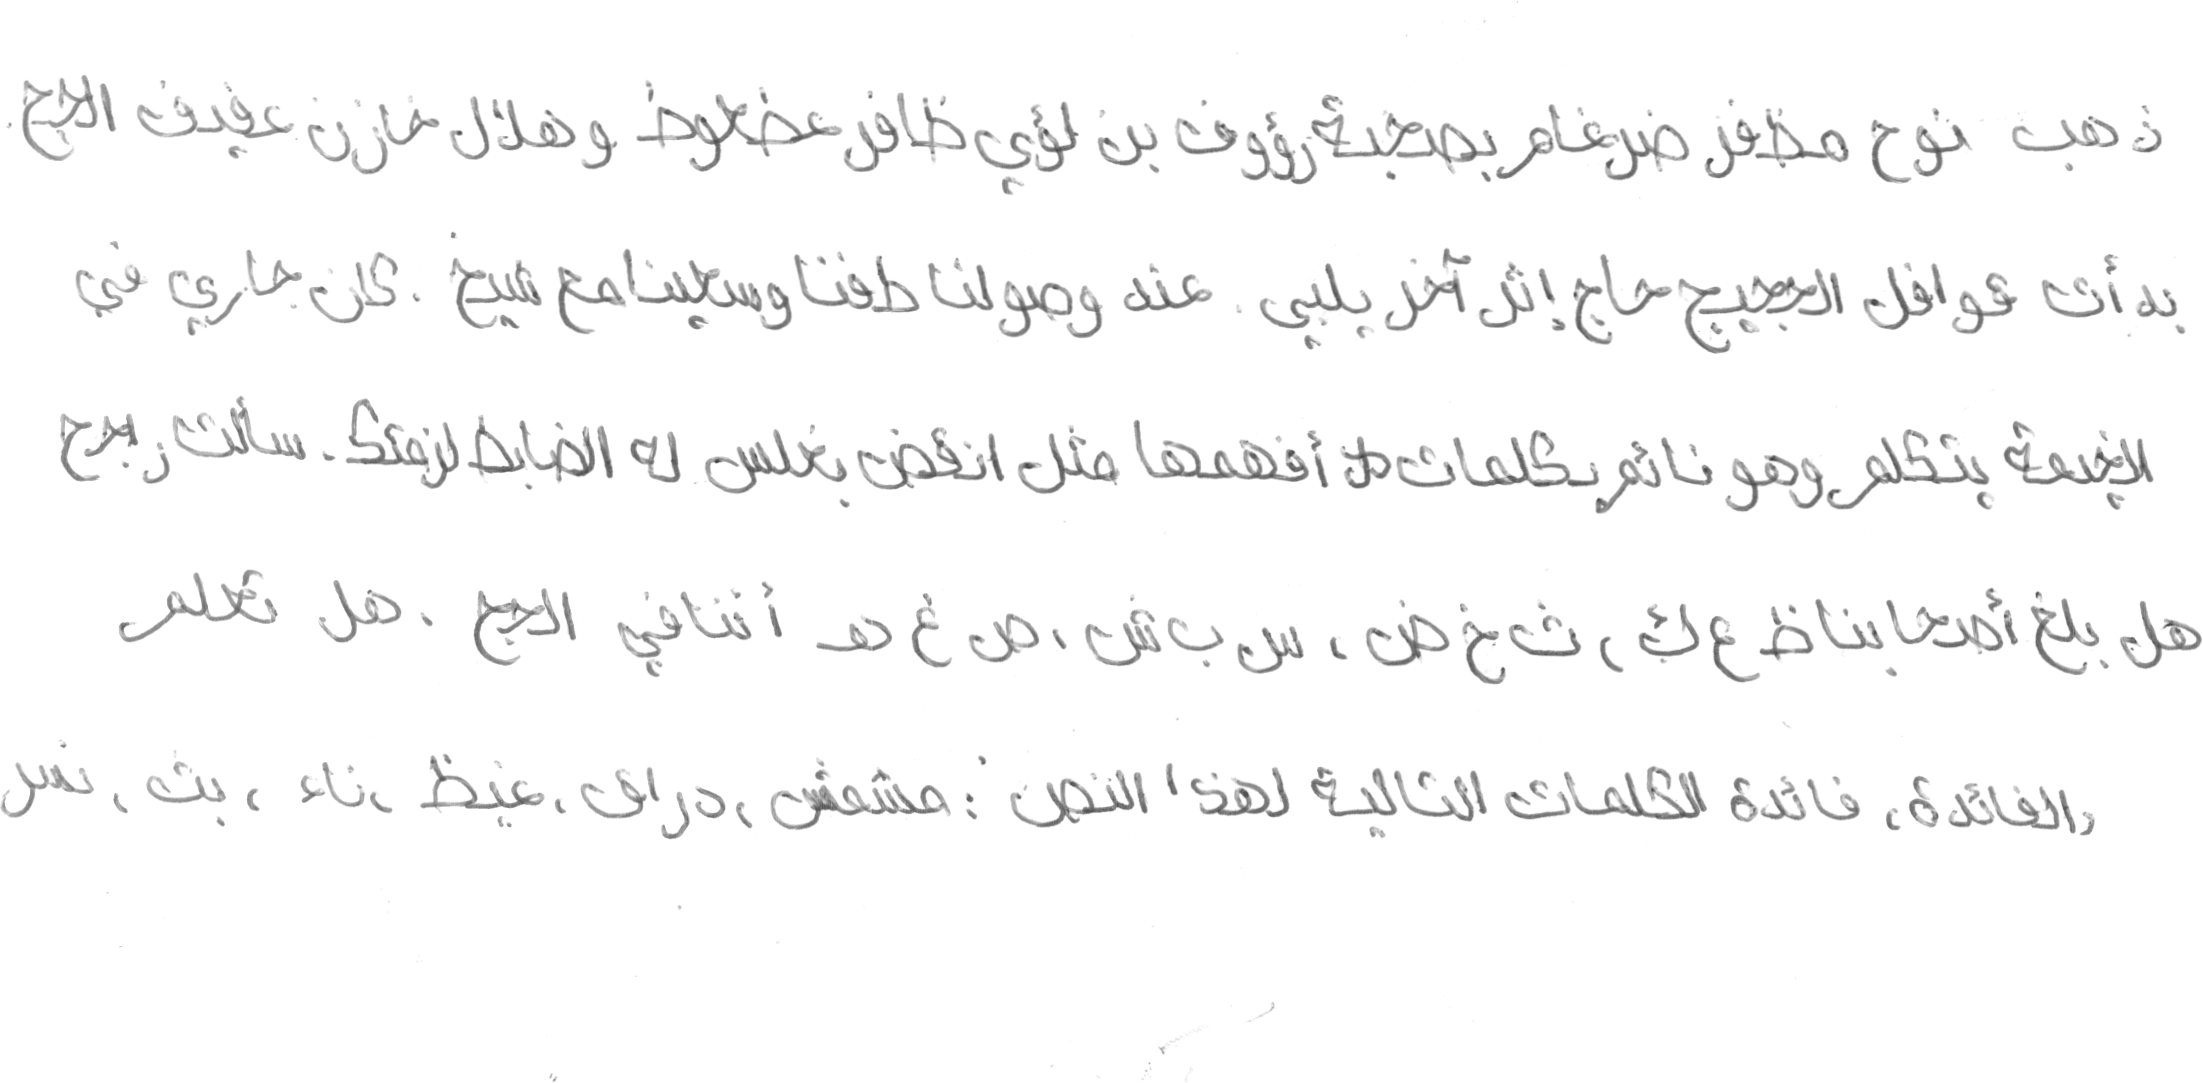 ذهب نوح مظفر ضرغام بصحبة رؤوف بن لؤي ظافر عضظوظ وهلال خازن عفيف الحج.
بدأت قوافل الحجيج حاج إثر آخر يلبي. عند وصولنا طفنا وسعينا مع شيخ. كان جاري في
الخيمة يتكلم وهو نائم بكلمات لا أفهمها مثل انقض بغلس له الضابط لزمتك. سألت زبدج
هل بلغ أصحابنا ظ ع ك، ث خ ض، س ب ش، ص غ هـ أننا في الحج. هل تعلم
والفائدة، فائدة الكلمات التالية لهذا النص: مشمش، دراق، غيظ، ناء، بث، نسر